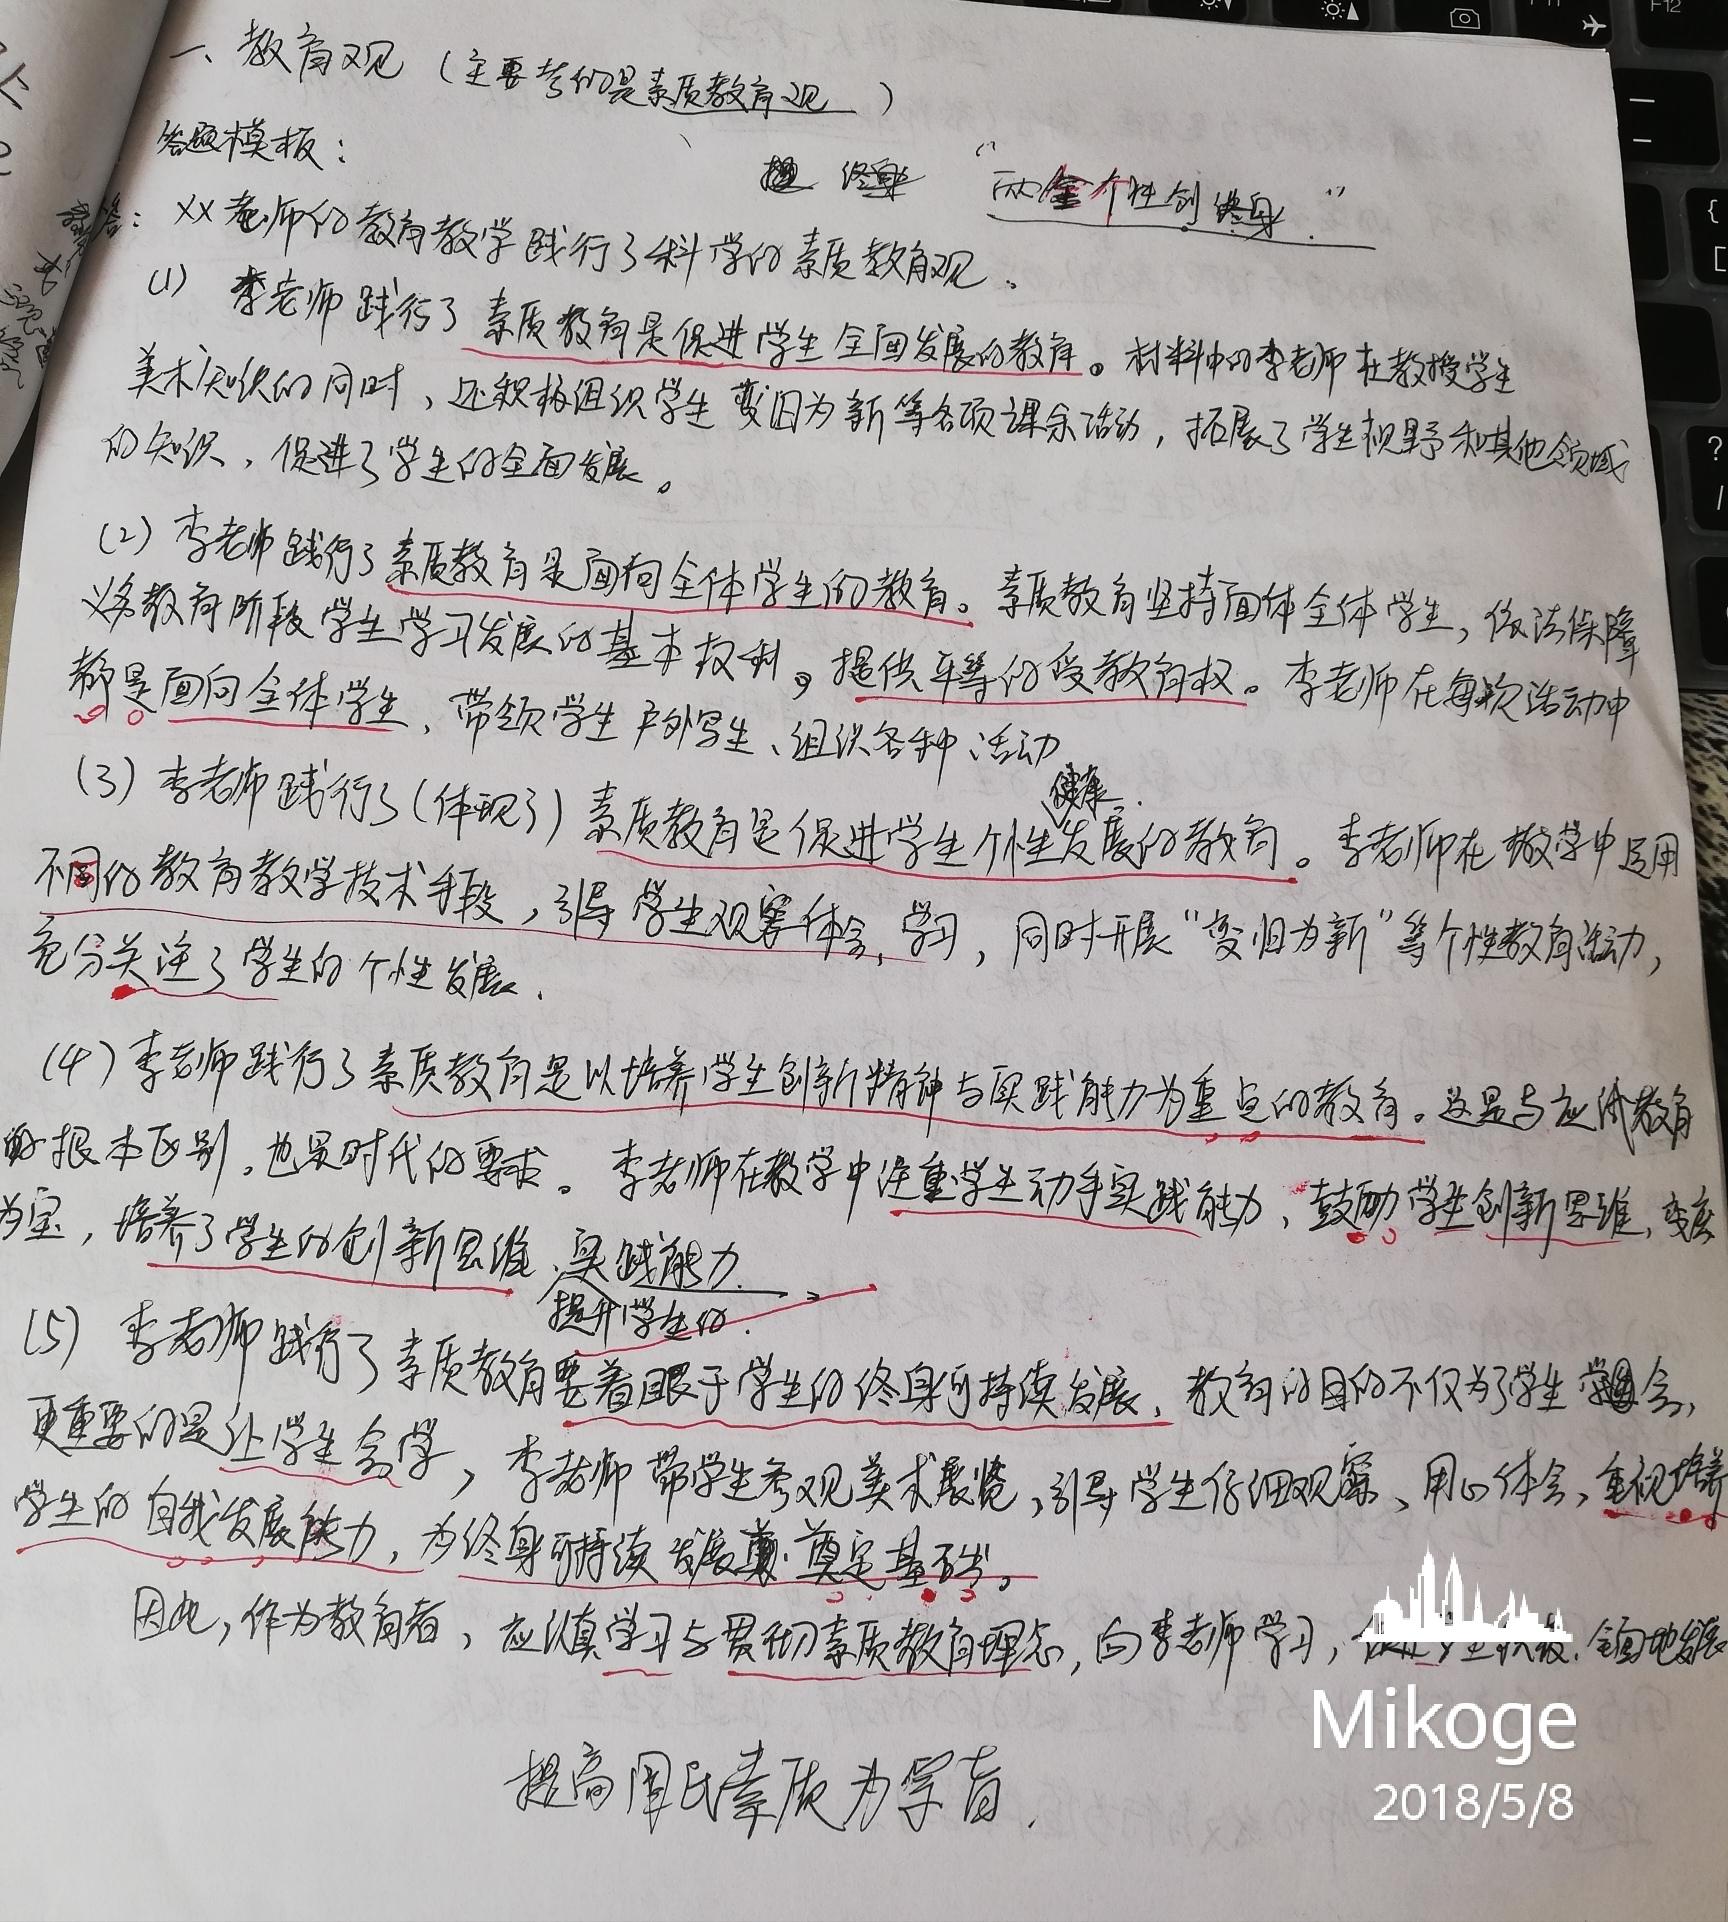 一、教育观（主要考的是素质教育观）
答题模板：
提 终身 “两全个性创终身”
答：XX老师的教育教学践行了科学的素质教育观。
(1) 李老师践行了素质教育是促进学生全面发展的教育。材料中的李老师在教授学生
美术知识的同时，还积极组织学生变旧为新等各项课余活动，拓展了学生视野和其他领域
的知识，促进了学生的全面发展。
(2) 李老师践行了素质教育是面向全体学生的教育。素质教育坚持面体全体学生，依法保障
义务教育阶段学生学习发展的基本权利。提供平等的受教育权。李老师在每次活动中
都是面向全体学生、带领学生户外写生、组织各种活动
健康
(3) 李老师践行了(体现了)素质教育是促进学生个性发展的教育。李老师在教学中运用
不同的教育教学技术手段，引导学生观察体会、学习，同时开展“变旧为新”等个性教育活动，
充分关注了学生的个性发展.
(4) 李老师践行了素质教育是以培养学生创新精神与实践能力为重点的教育。这是与应试教育
的根本区别，也是时代的要求。李老师在教学中注重学生动手实践能力、鼓励学生创新思维，变废
为宝，培养了学生的创新思维、实践能力.
提升学生的.
(5) 李老师践行了素质教育要着眼于学生的终身可持续发展，教育的目的不仅为了学生学会，
更重要的是让学生会学，李老师带学生参观美术展览，引导学生仔细观察、用心体会，重视培养
学生的自我发展能力，为终身可持续发展奠定基础。
因此，作为教育者，应认真学习与贯彻素质教育理念，向李老师学习，全面地发展
提高国民素质为宗旨.
Mikoge
2018/5/8